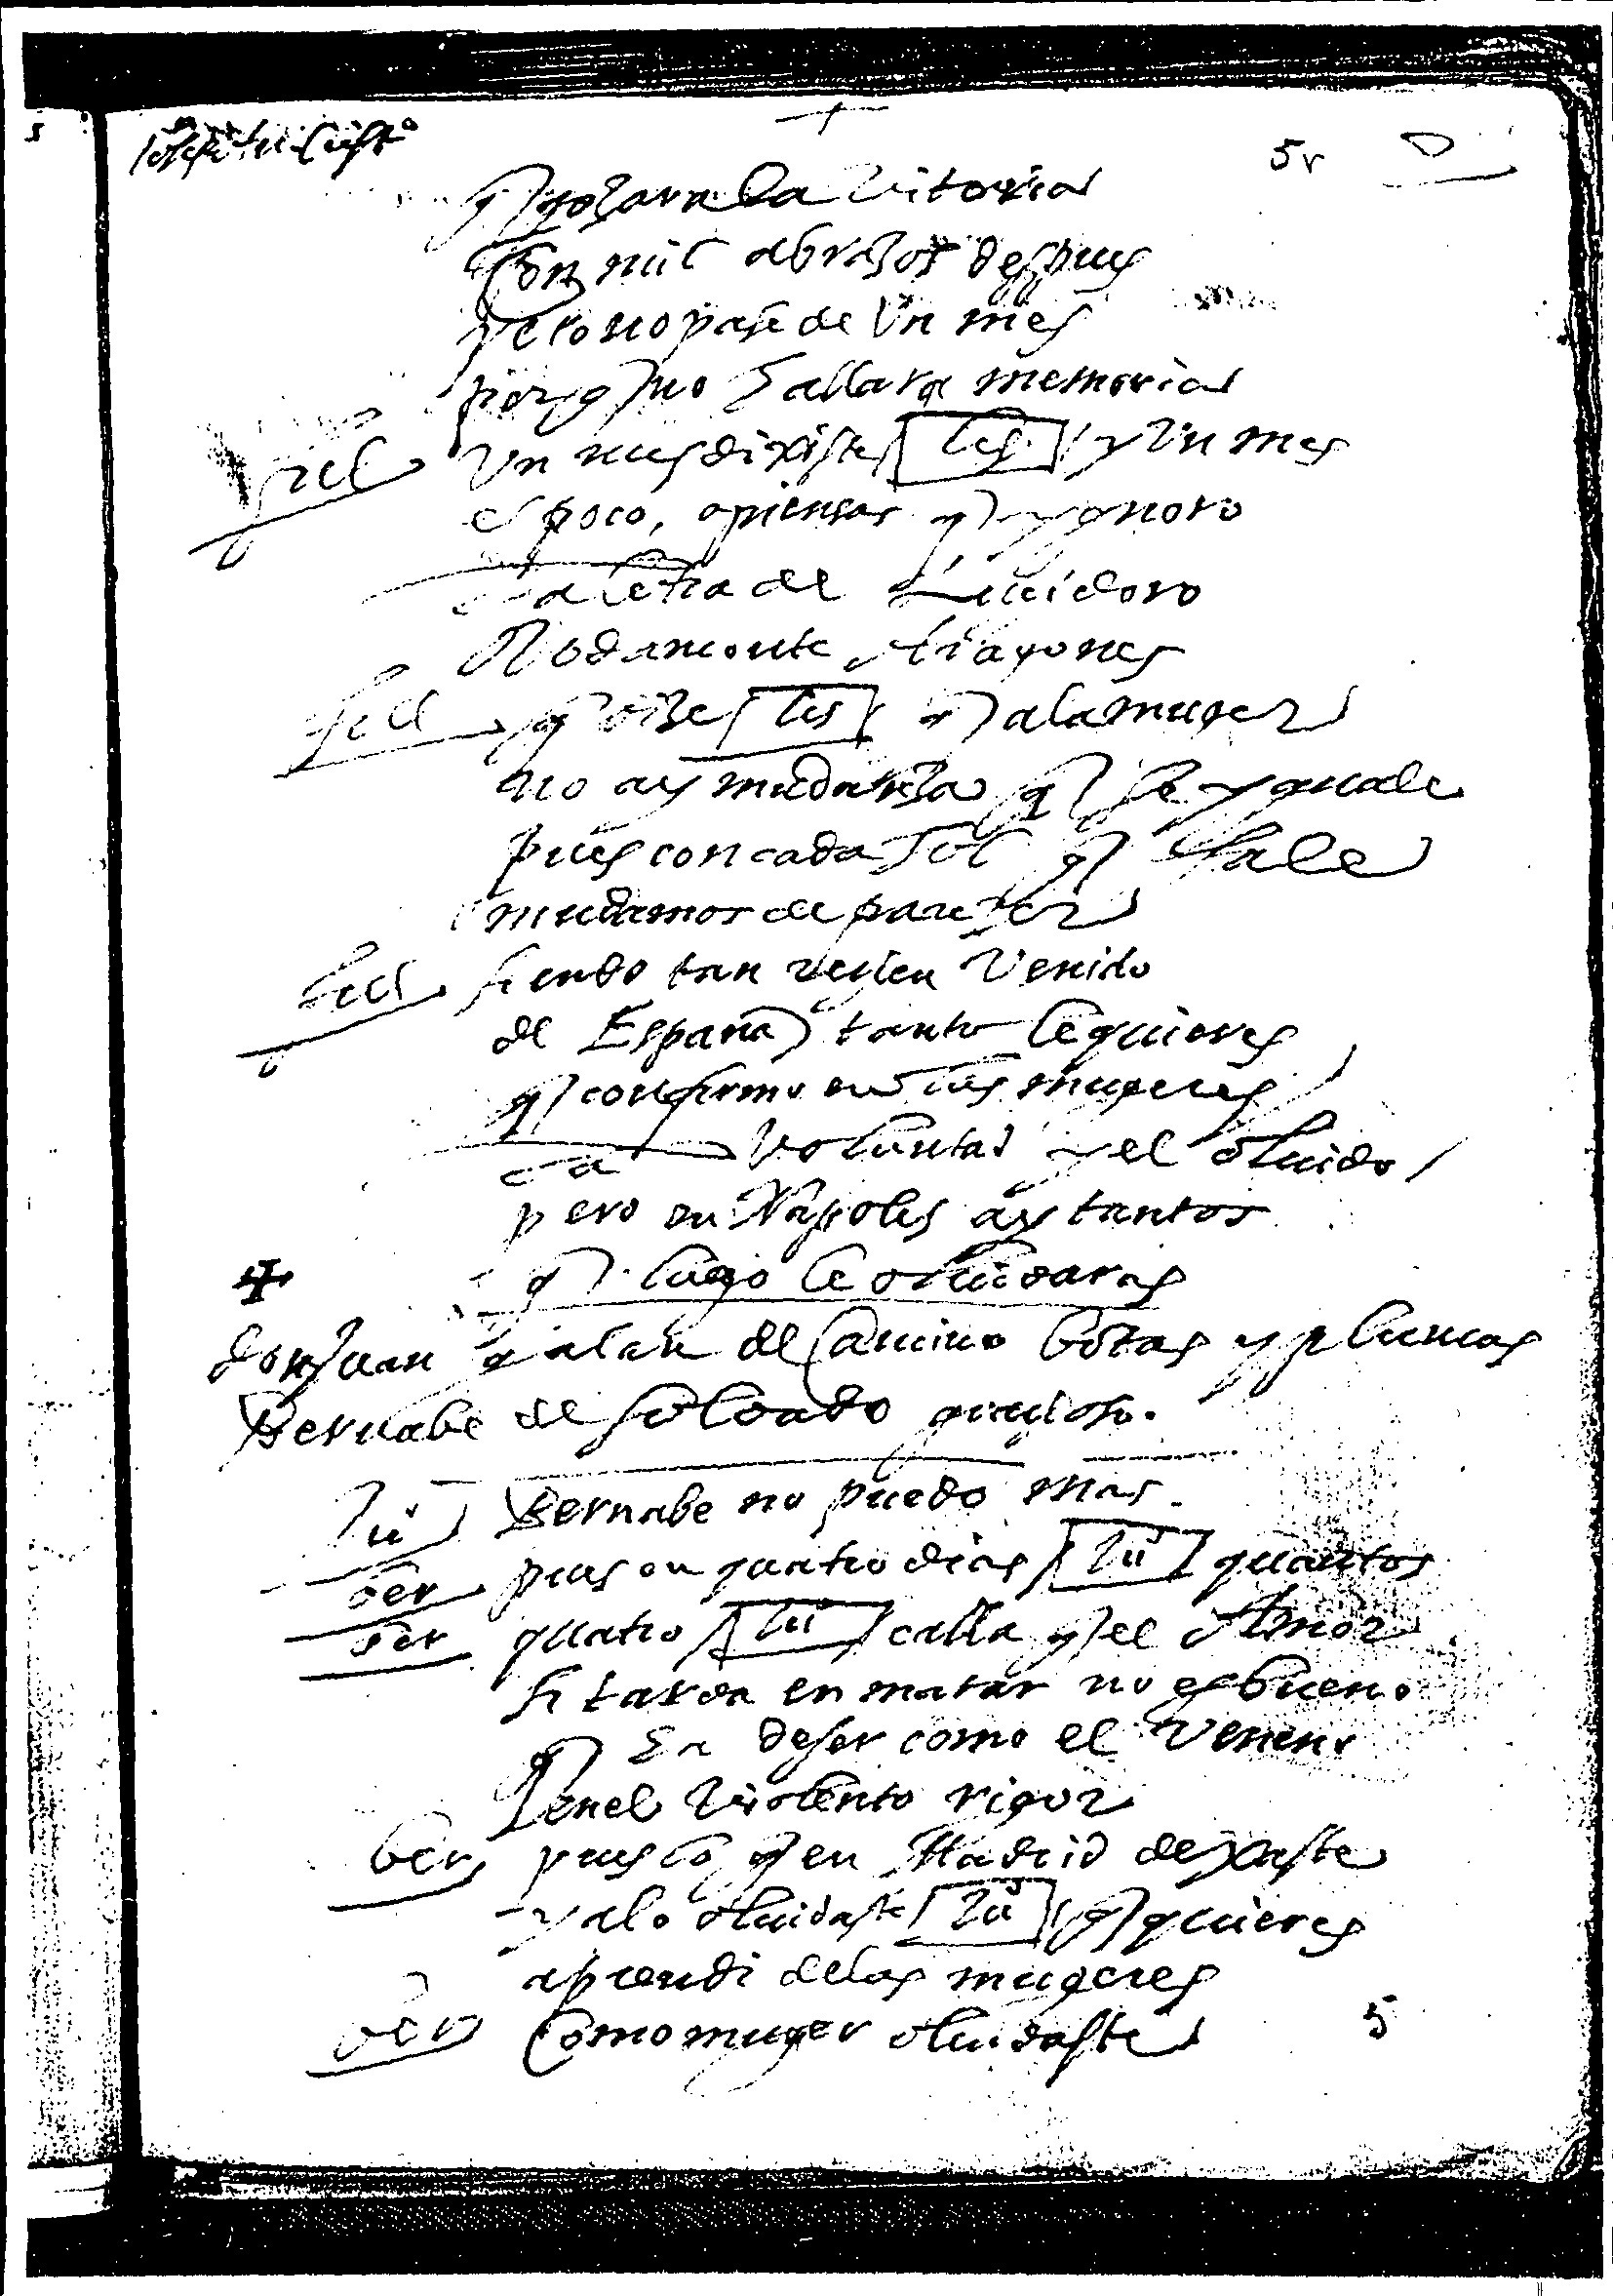 5r
q gozara la vitoria
con mil abrazos despues
pero no pase de vn mes
porq no hallara memoria
vn mes dixiste les y vn mes
es poco, o piensas q ygnoro
la letra de Lucidoro
Rodamonte Aragones
q dize les q a la muger
no ay mudanza q se yguale
pues con cada sol q sale
mudamos de parezer
siendo tan rezien venido
de España tanto le quieres
q confirmo en las mugeres
la voluntad y el oluido
pero en Napoles ay tantos
q luego le oluidaras
don Juan galan de camino botas y plumas
Bernabe de soldado gracioso.
Ju Bernabe no puedo mas.
ber pues en quatro dias Ju quantos
ber quatro Ju calla q el Amor
si tarda en matar no es bueno
q ha de ser como el veneno
en el violento rigor
ber pues lo q en Madrid dexaste
ya lo oluidaste Ju q quieres
aprendi de las mugeres
ber como muger oluidaste
5